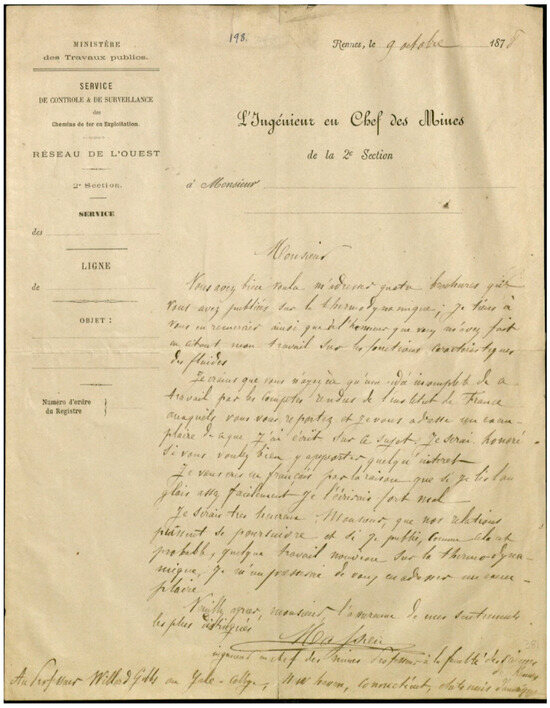 198.
MINISTÈRE
des Travaux publics.
SERVICE
DE CONTROLE & DE SURVEILLANCE
des
Chemins de fer en Exploitation.
RÉSEAU DE L'OUEST
2e Section.
SERVICE
des
LIGNE
de
OBJET :
Numéro d'ordre
du Registre
Rennes, le 9 octobre 1878
L'Ingénieur en Chef des Mines
de la 2e Section
à Monsieur
Monsieur
Vous avez bien voulu m'adresser quatre brochures que
vous avez publiées sur la thermodynamique; je tiens à
vous en remercier ainsi que de l'honneur que vous m'avez fait
en citant mon travail sur les fonctions caractéristiques
des fluides
Je crains que vous n'ayez qu'une idée incomplète de ce
travail par les comptes rendus de l'institut de France
auxquels vous vous reportez et je vous adresse un exem-
plaire de ce que j'ai écrit sur le sujet. Je serai honoré
si vous voulez bien y apporter quelqu'intérêt
Je vous écris en français par la raison que si je lis l'an
glais assez facilement je l'écrirais fort mal
Je serais très heureux, Monsieur, que nos relations
puissent se poursuivre et si je publie, comme cela est
probable, quelque travail nouveau sur la thermodyna-
mique, je m'empresserai de vous en adresser un exem-
plaire
Veuillez agréer, monsieur l'assurance de mes sentiments
les plus distingués
Massieu
ingénieur en chef des mines Professeur à la faculté des sciences
Rennes
Au Professeur Willard Gibbs au Yale-College, New haven, Connecticut, états unis d'amérique